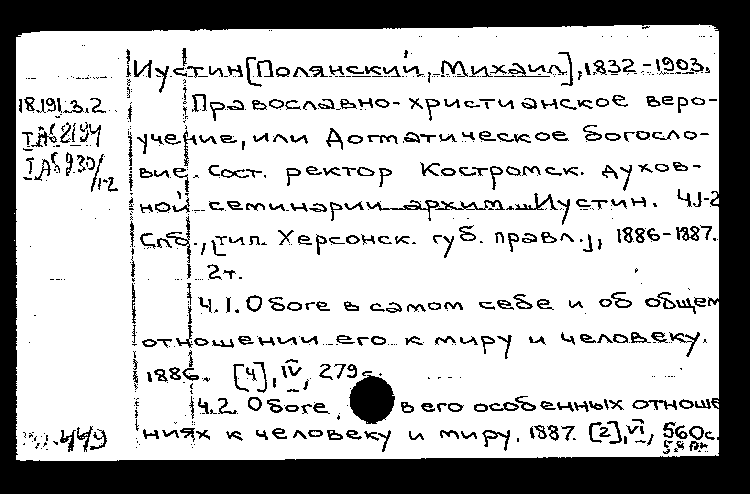 Иустин [Полянский, Михаил], 1832-1903.
18.191.3.2
Православно-христианское веро-
учение, или Догматическое богосло-
вие. Сост. ректор Костромск. духов-
ной семинарии архим. Иустин. Ч.1-2
Спб., [тип. Херсонск. губ. правл.], 1886-1887.
2т.
Ч.1. О боге в самом себе и об общем
отношении его к миру и человеку.
1886. [4], IV, 279 с.
Ч.2. О боге в его особенных отноше
ниях к человеку и миру. 1887. [2], VI, 560 с.